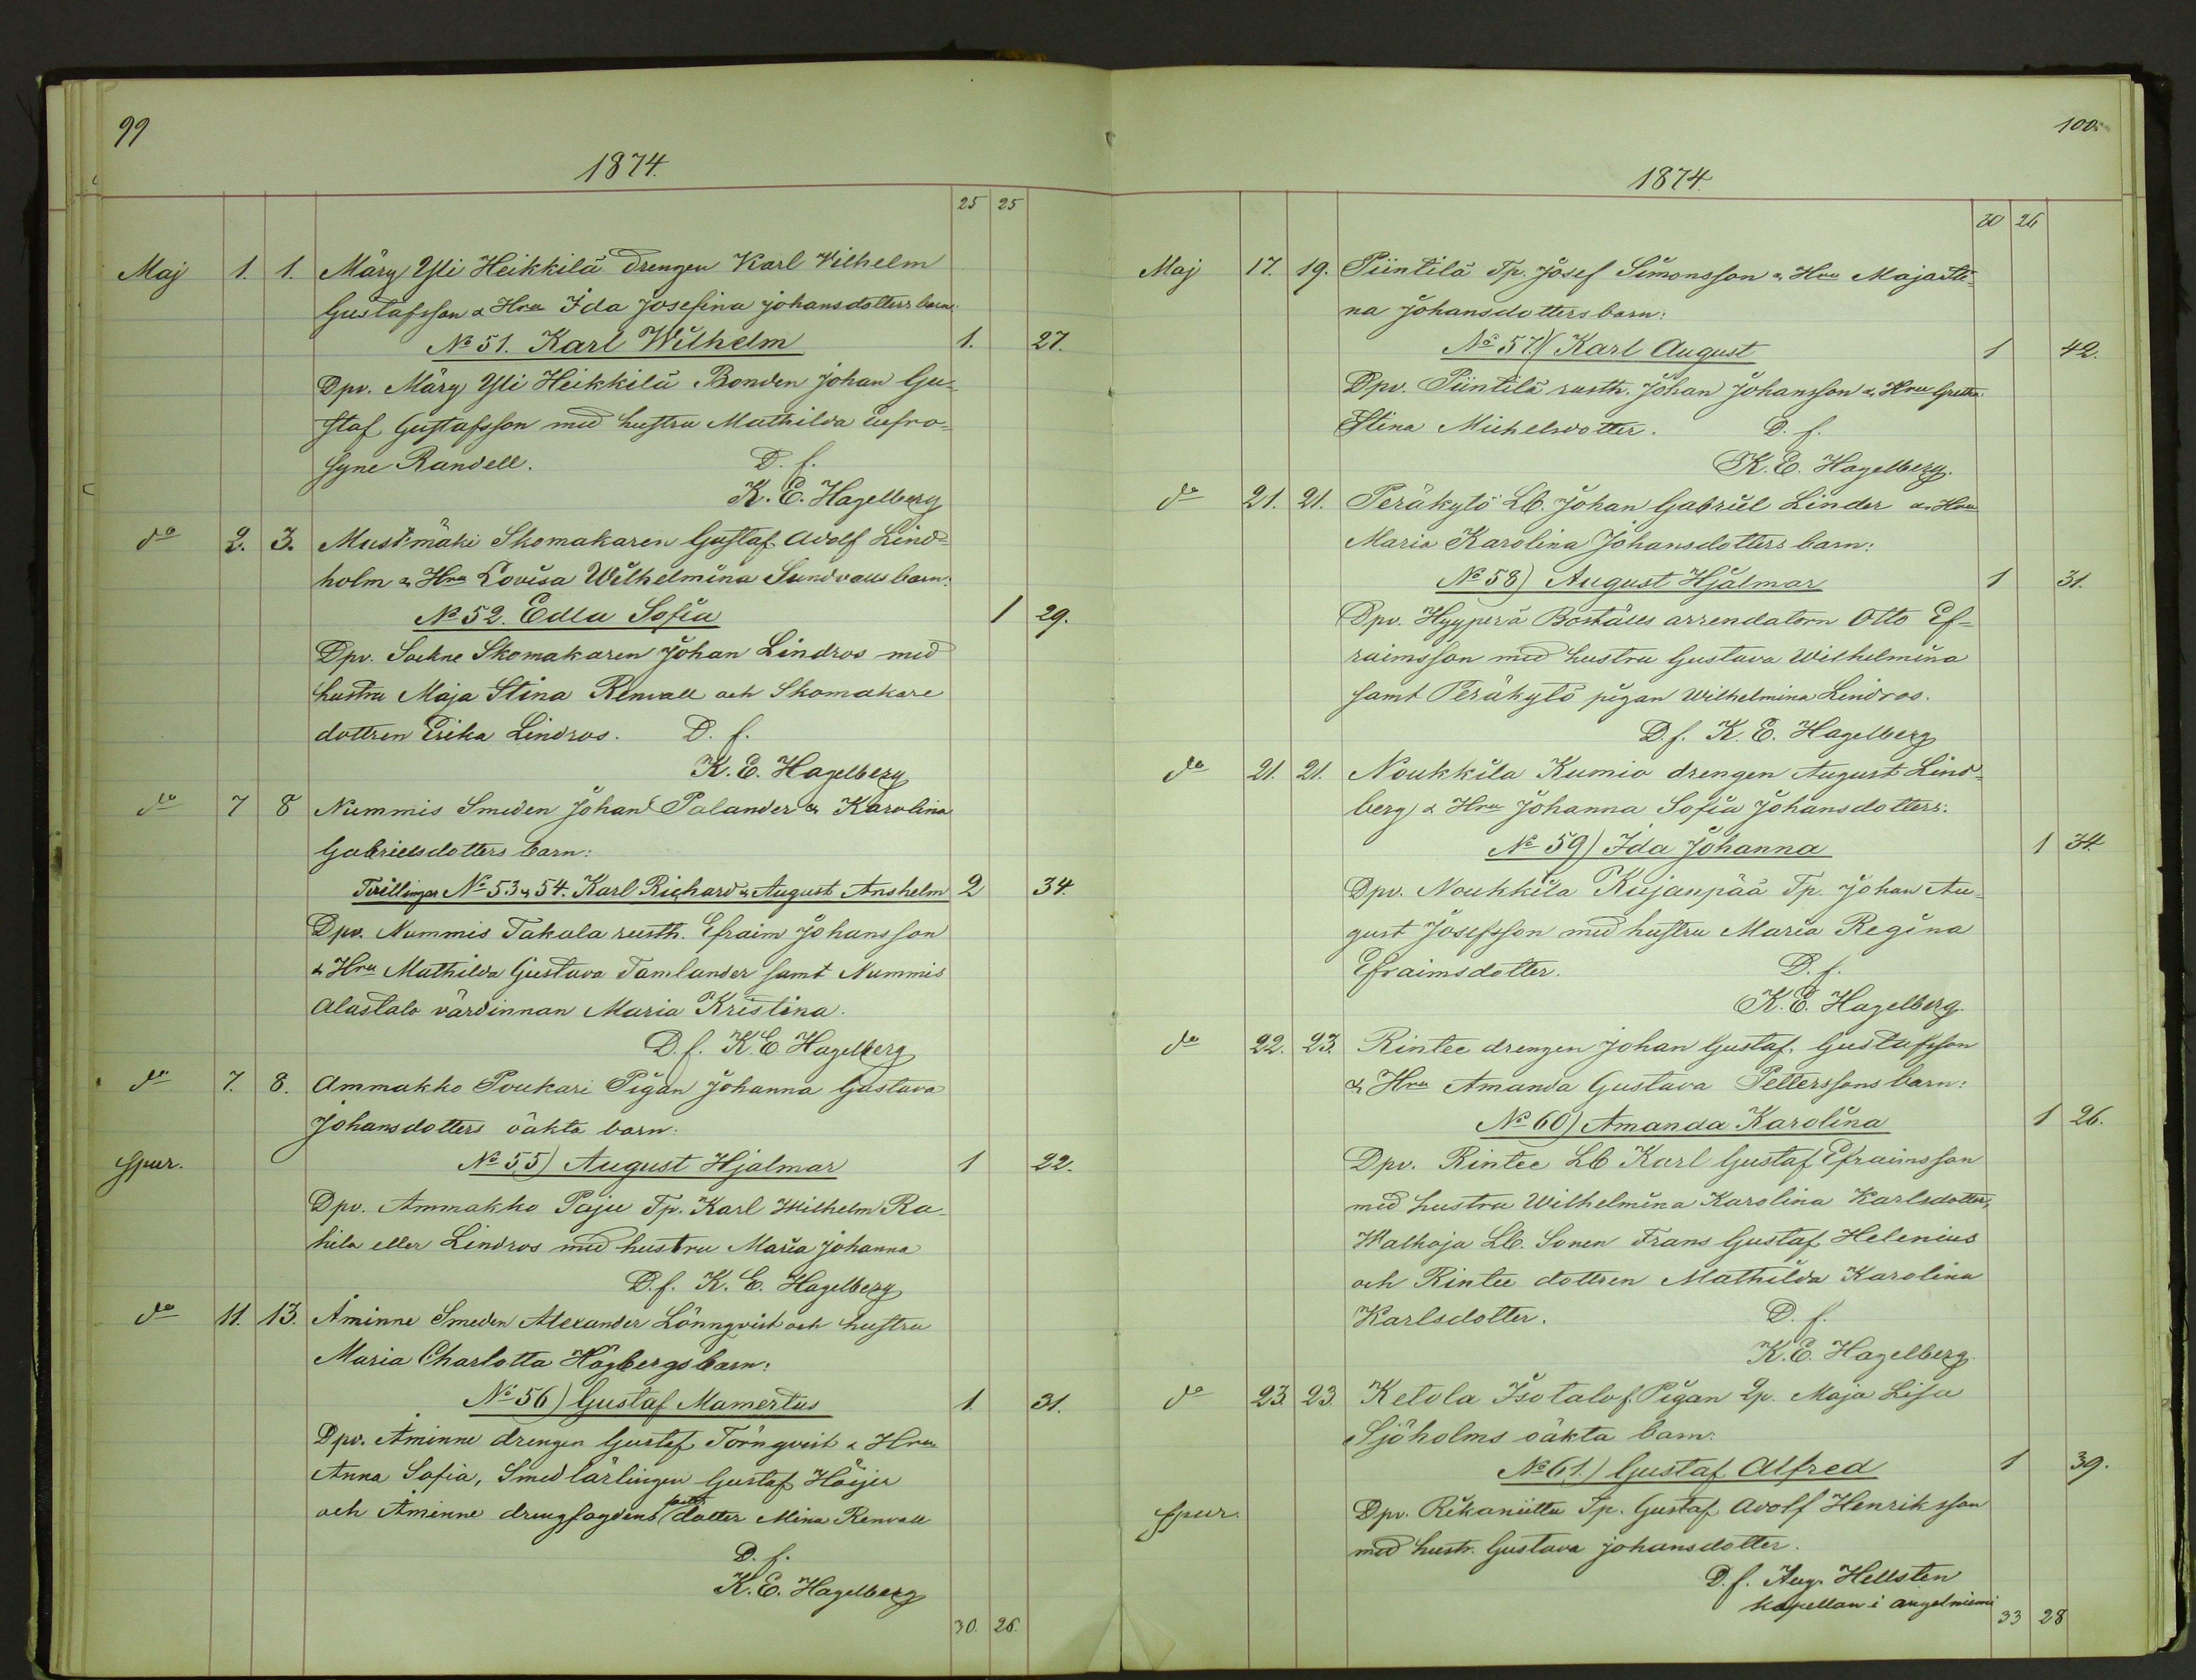 99
1874.
25 25
Maj 1. 1. Märy Yli Heikkilä drengen Karl Vilhelm
Gustafsson & Hru Ida Josefina Johansdotters barn
No 51. Karl Wilhelm 1. 27.
Dpv. Märy Yli Heikkilä Bonden Johan Gu-
staf Gustafsson med hustru Mathilda Eufro-
syne Randell. D. f.
K. E. Hagelberg
do 2. 3. Mustmäki Skomakaren Gustaf Adolf Lind-
holm & Hru Lovisa Wilhelmina Sundvalls barn:
No 52. Edla Sofia 1 29.
Dpv. Sockne Skomakaren Johan Lindros med
hustru Maja Stina Renvall och Skomakare
dottren Erika Lindros. D. f.
K. E. Hagelberg
do 7 8 Nummis Smeden Johan Palander & Karolina
Gabrielsdotters barn:
Tvillingar No 53 & 54. Karl Richard & August Anshelm 2 34.
Dpv. Nummis Takala rusth. Efraim Johansson
& Hru Mathilda Gustava Tamlander samt Nummis
Alastalo värdinnan Maria Kristina.
D. f. K. E. Hagelberg
do 7. 8. Ammakko Poukari Pigan Johanna Gustava
Johansdotters oäkta barn:
spur. No 55) August Hjalmar 1 22.
Dpv. Ammakko Paju Tp. Karl Wilhelm Ra-
hila eller Lindros med hustru Maria Johanna
D. f. K. E. Hagelberg
do 11. 13. Åminne Smeden Alexander Lönnqvist och hustru
Maria Charlotta Högbergs barn:
No 56) Gustaf Mamertus 1. 31.
Dpv. Åminne drengen Gustaf Törnqvist & Hru
Anna Sofia, Smedlärlingen Gustaf Höijer
och Åminne drengfogdens dotter Mina Renvall
D. f.
K. E. Hagelberg
30. 26.
100.
1874.
30 26
Maj 17. 19. Piintilä Tp. Josef Simonsson & Hru Maja Sti-
na Johansdotters barn:
No 57.) Karl August 1 42.
Dpv. Piintilä rusth. Johan Johansson & Hru Greta
Stina Michelsdotter. D. f.
K. E. Hagelberg.
do 21. 21. Peräkylö Lb. Johan Gabriel Linder & Hru
Maria Karolina Johansdotters barn:
No 58) August Hjalmar 1 31.
Dpv. Hyyperä Boställs arrendatorn Otto Ef-
raimsson med hustru Gustava Wilhelmina
samt Peräkylö pigan Wilhelmina Lindros.
D. f. K. E. Hagelberg
do 21. 21. Noukkila Kumio drengen August Lind-
berg & Hru Johanna Sofia Johansdotters:
No 59) Ida Johanna 1 34.
Dpv. Noukkila Kujanpää Tp. Johan Au-
gust Josefsson med hustru Maria Regina
Efraimsdotter. D. f.
K. E. Hagelberg.
do 22. 23. Rintee drengen Johan Gustaf Gustafsson
& Hru Amanda Gustava Petterssons barn:
No 60) Amanda Karolina 1 26.
Dpv. Rintee Lb Karl Gustaf Efraimsson
med hustru Wilhelmina Karolina Karlsdotter,
Walkoja Lb. Sonen Frans Gustaf Helenius
och Rintee dottren Mathilda Karolina
Karlsdotter. D. f.
K. E. Hagelberg.
do 23. 23. Ketola Isotalo f. Pigan Qp. Maja Lisa
Sjöholms oäkta barn:
No 61.) Gustaf Alfred 1 39.
spur. Dpv. Rikaniittu Tp. Gustaf Adolf Henriksson
med hustr. Gustava Johansdotter.
D. f. Aug. Hellsten
kapellan i angelniemi
33 28